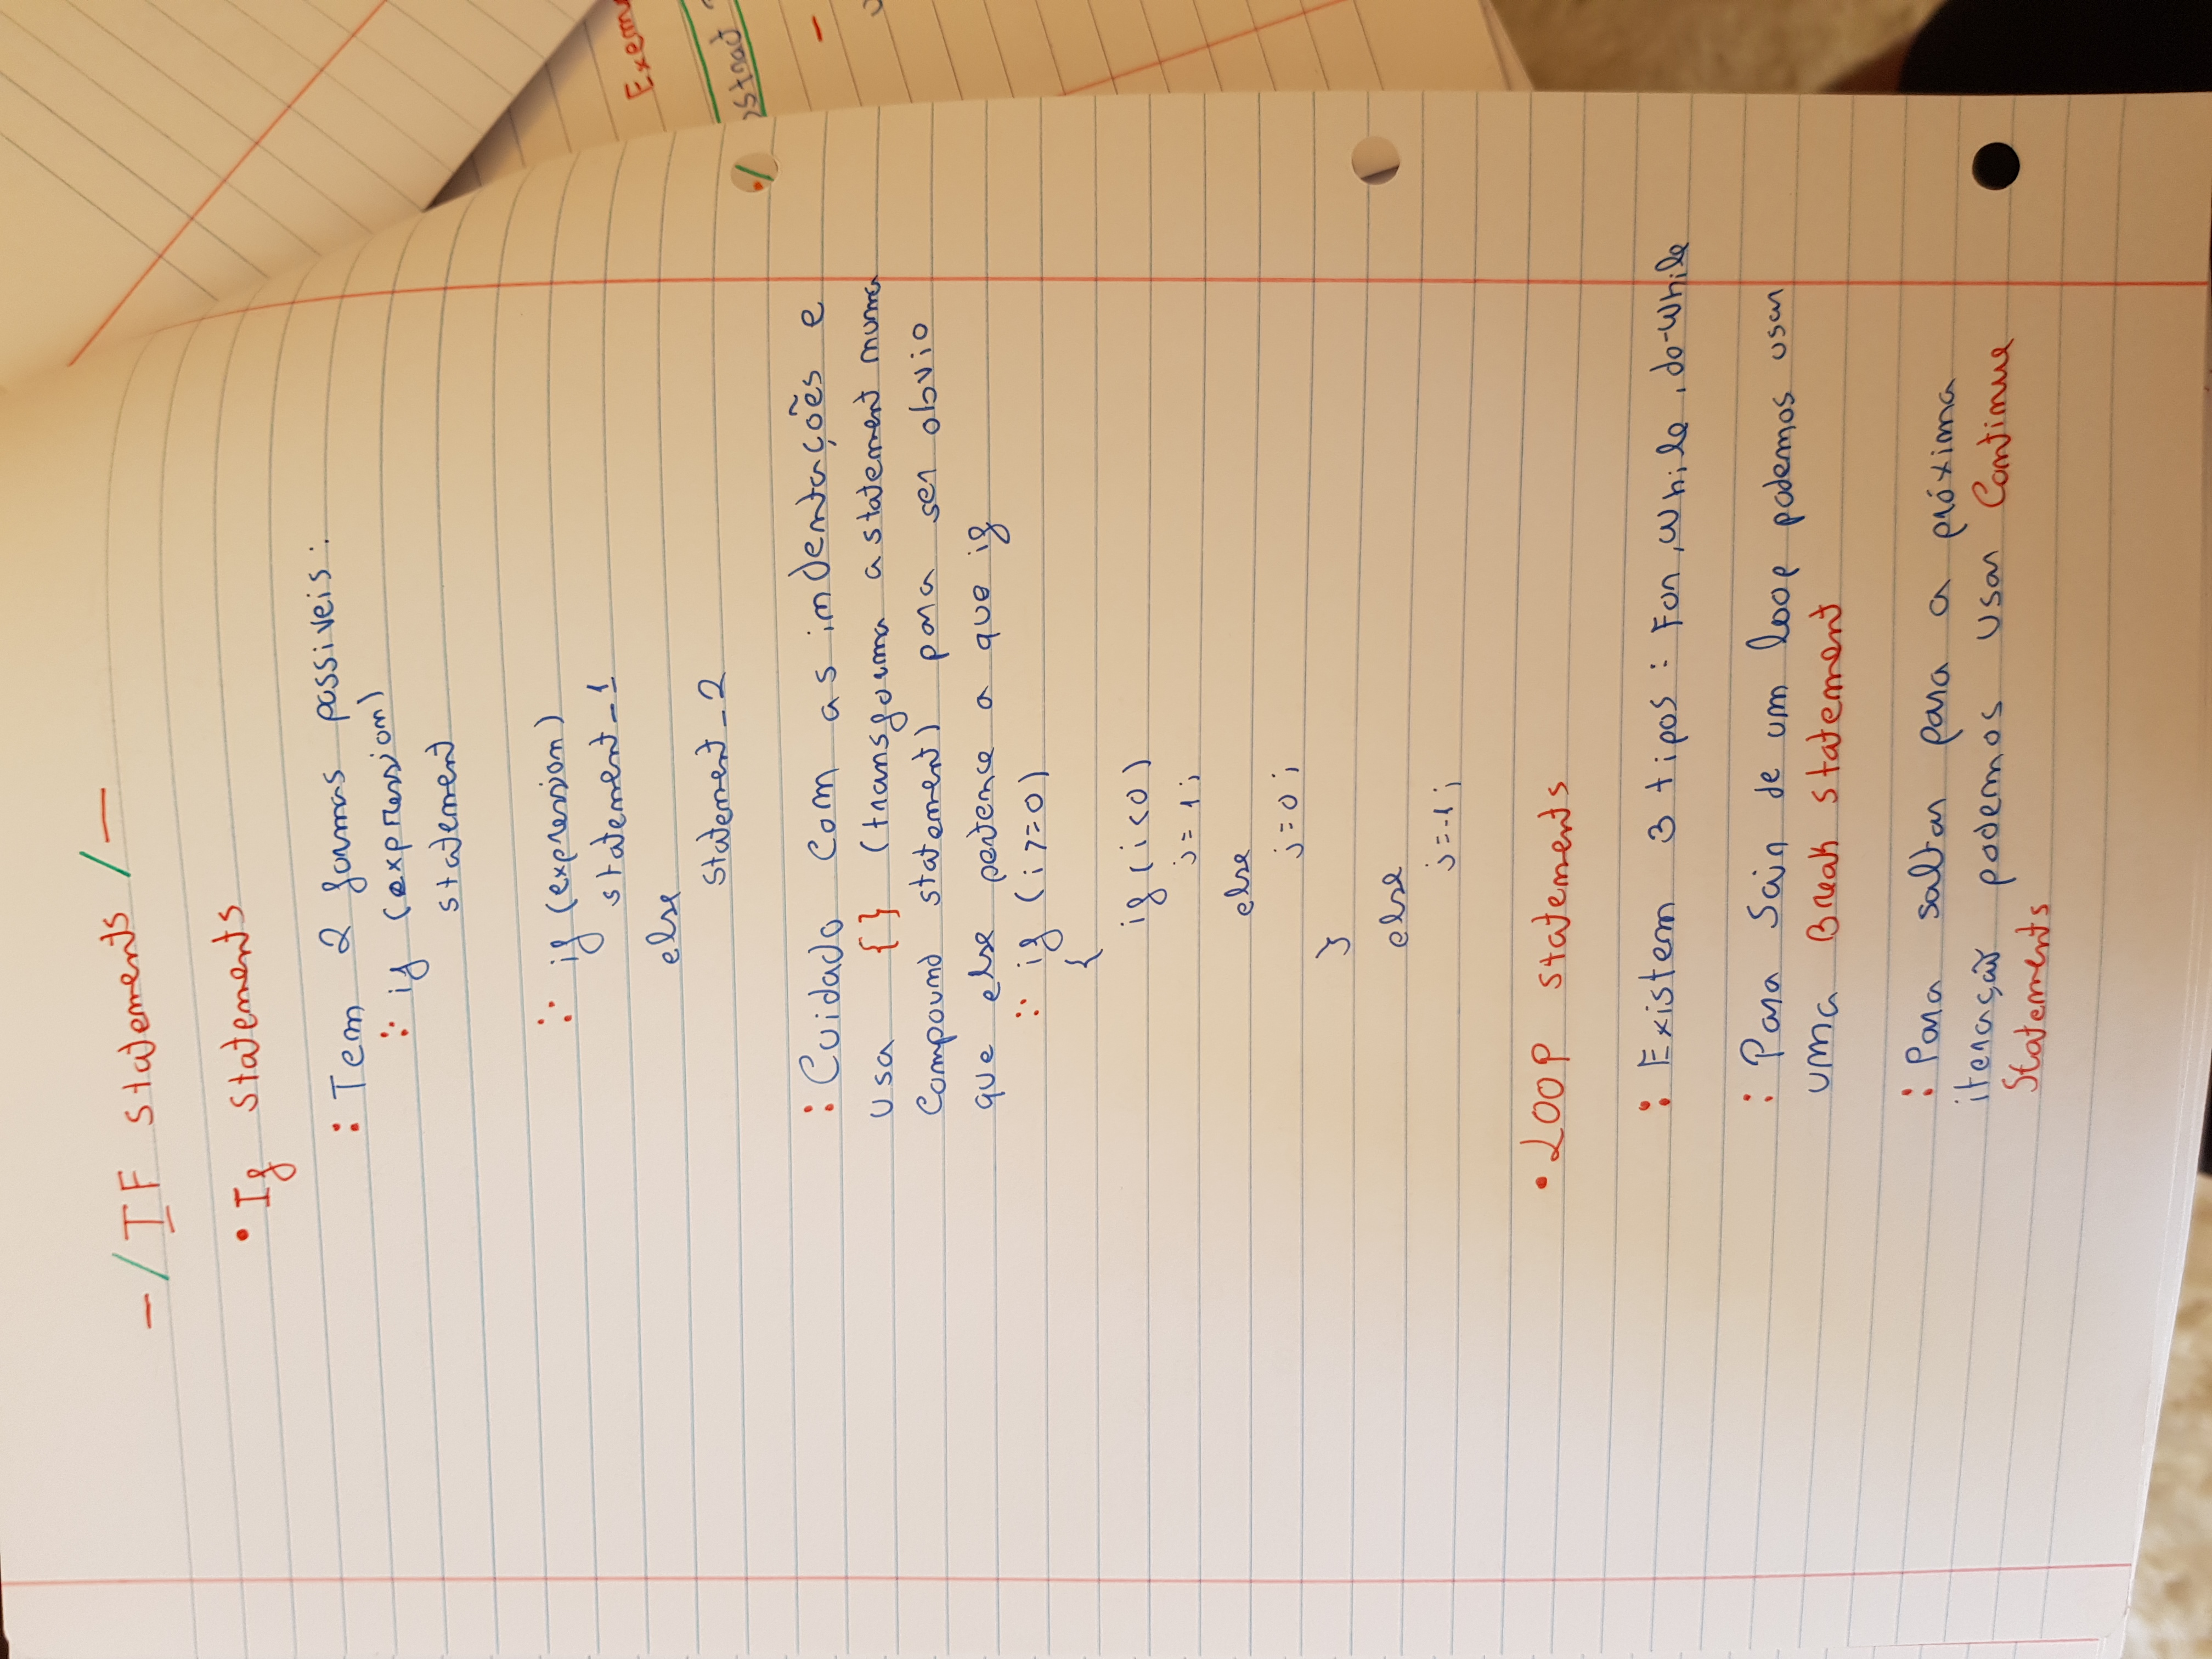 -/ IF Statements /-
• If Statements
: Tem 2 formas possiveis:
∵ if (expression)
statement
∵ if (expression)
statement_1
else
statement_2
: Cuidado com as indentações e
usa {} (transforma a statement numa
compound statement) para ser obvio
que else pertence a que if
∵ if (i>=0)
{
if (i<0)
j=1;
else
j=0;
}
else
j=-1;
• LOOP statements
: Existem 3 tipos: For, While, do-While
: Para sair de um loop podemos usar
uma Break statement
: Para saltar para a próxima
iteração podemos usar Continue
Statements
Exem
stract